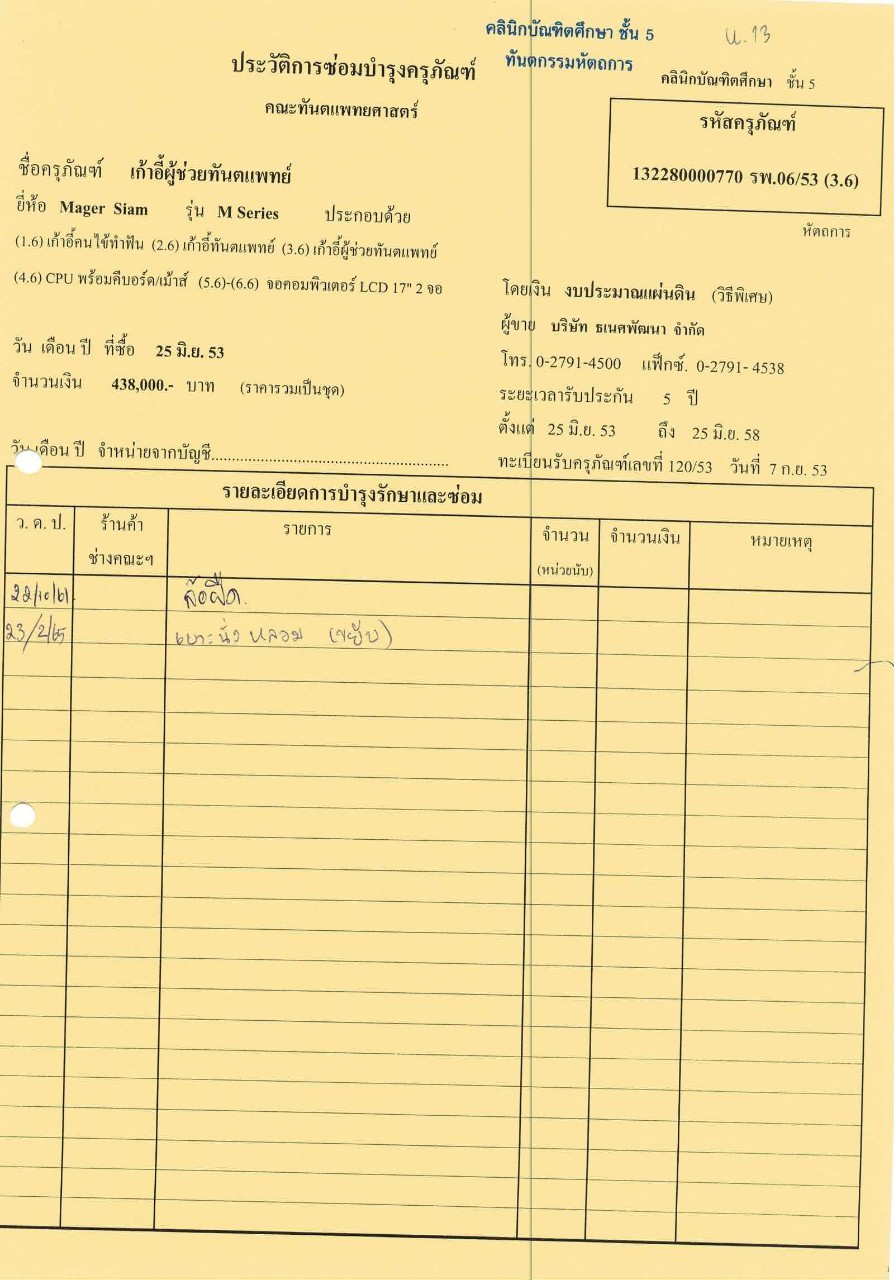 คลินิกบัณฑิตศึกษา ชั้น 5
น.13
ทันตกรรมหัตถการ
ประวัติการซ่อมบำรุงครุภัณฑ์
คลินิกบัณฑิตศึกษา ชั้น 5
คณะทันตแพทยศาสตร์
รหัสครุภัณฑ์
132280000770 รพ.06/53 (3.6)
หัตถการ
ชื่อครุภัณฑ์ เก้าอี้ผู้ช่วยทันตแพทย์
ยี่ห้อ Mager Siam รุ่น M Series ประกอบด้วย
(1.6) เก้าอี้คนไข้ทำฟัน (2.6) เก้าอี้ทันตแพทย์ (3.6) เก้าอี้ผู้ช่วยทันตแพทย์
(4.6) CPU พร้อมคีบอร์ด/เม้าส์ (5.6)-(6.6) จอคอมพิวเตอร์ LCD 17" 2 จอ
โดยเงิน งบประมาณแผ่นดิน (วิธีพิเศษ)
ผู้ขาย บริษัท ธเนศพัฒนา จำกัด
วัน เดือน ปี ที่ซื้อ 25 มิ.ย. 53
โทร. 0-2791-4500 แฟ็กซ์. 0-2791- 4538
จำนวนเงิน 438,000.- บาท (ราคารวมเป็นชุด)
ระยะเวลารับประกัน 5 ปี
ตั้งแต่ 25 มิ.ย. 53 ถึง 25 มิ.ย. 58
วัน เดือน ปี จำหน่ายจากบัญชี..........................................................
ทะเบียนรับครุภัณฑ์เลขที่ 120/53 วันที่ 7 ก.ย. 53
รายละเอียดการบำรุงรักษาและซ่อม
ว. ด. ป. ร้านค้า รายการ จำนวน จำนวนเงิน หมายเหตุ
ช่างคณะฯ (หน่วยนับ)
22/10/61 ล้อฝืด.
23/2/65 เบาะนั่ง หลวม (ขยับ)